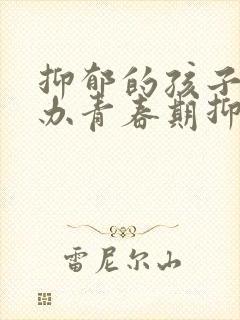 抑郁的孩子
办青春期抑
雷尼尔山